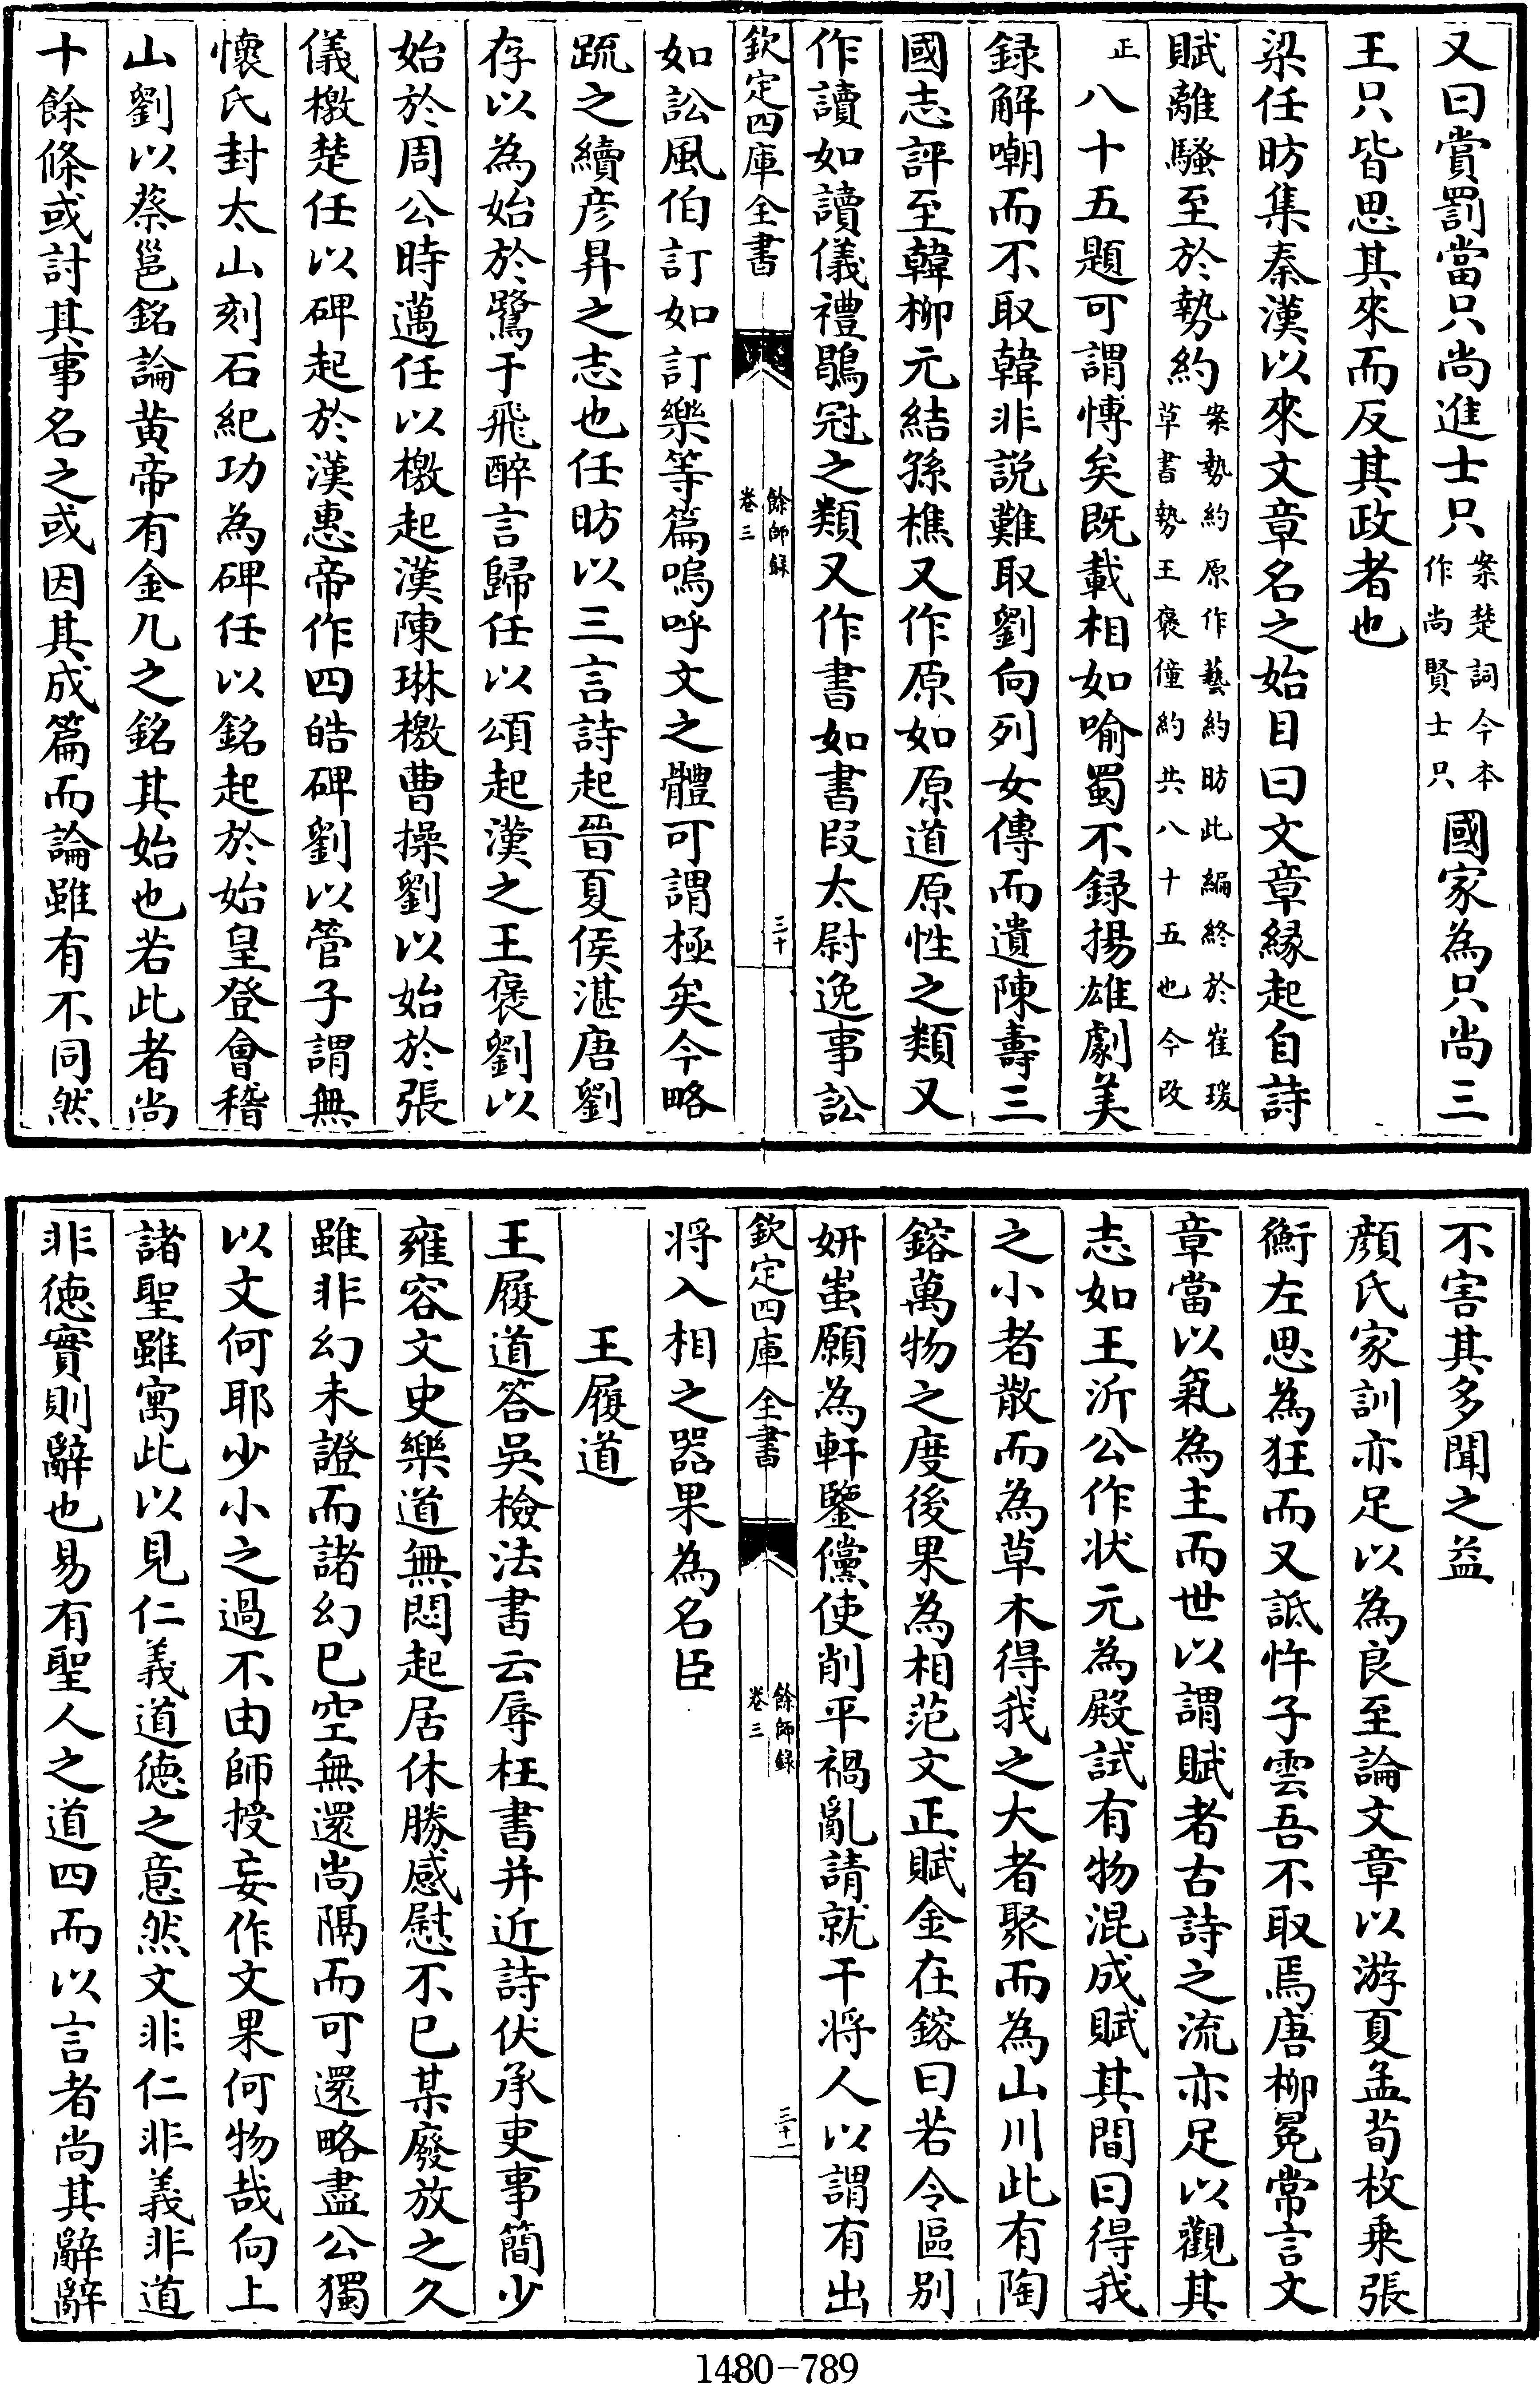 又曰賞罰當只尚進士只案楚詞今本作尚賢士只國家為只尚三
王只皆思其來而反其政者也
梁任昉集秦漢以來文章名之始目曰文章緣起自詩
賦離騷至於勢約案勢約原作藝約昉此編終於崔瑗草書勢王褒僮約共八十五也今改
正八十五題可謂博矣既載相如喻蜀不録揚雄劇美
録解嘲而不取韓非說難取劉向列女傳而遺陳壽三
國志評至韓柳元結孫樵又作原如原道原性之類又
作讀如讀儀禮鶡冠之類又作書如書段太尉逸事訟
欽定四庫全書 餘師錄卷三 三十
如訟風伯訂如訂樂等篇嗚呼文之體可謂極矣今略
䟽之續彦昇之志也任昉以三言詩起晉夏侯湛唐劉
存以為始於鷺于飛醉言歸任以頌起漢之王褒劉以
始於周公時邁任以檄起漢陳琳檄曹操劉以始於張
儀檄楚任以碑起於漢惠帝作四皓碑劉以管子謂無
懷氏封太山刻石紀功為碑任以銘起於始皇登會稽
山劉以蔡邕銘論黄帝有金几之銘其始也若此者尚
十餘條或討其事名之或因其成篇而論雖有不同然
不害其多聞之益
顔氏家訓亦足以為良至論文章以游夏孟荀枚乘張
衡左思為狂而又詆忤子雲吾不取焉唐柳冕常言文
章當以氣為主而世以謂賦者古詩之流亦足以觀其
志如王沂公作狀元為殿試有物混成賦其間曰得我
之小者散而為草木得我之大者聚而為山川此有陶
鎔萬物之度後果為相范文正賦金在鎔曰若令區别
妍蚩願為軒鑒儻使削平禍亂請就干將人以謂有出
欽定四庫全書 餘師錄卷三 三十一
將入相之器果為名臣
王履道
王履道答吳檢法書云辱枉書并近詩伏承吏事簡少
雍容文史樂道無悶起居休勝感慰不已某廢放之久
雖非幻未證而諸幻已空無還尚隔而可還略盡公獨
以文何耶少小之過不由師授妄作文果何物哉向上
諸聖雖寓此以見仁義道徳之意然文非仁非義非道
非徳實則辭也易有聖人之道四而以言者尚其辭辭
1480-789